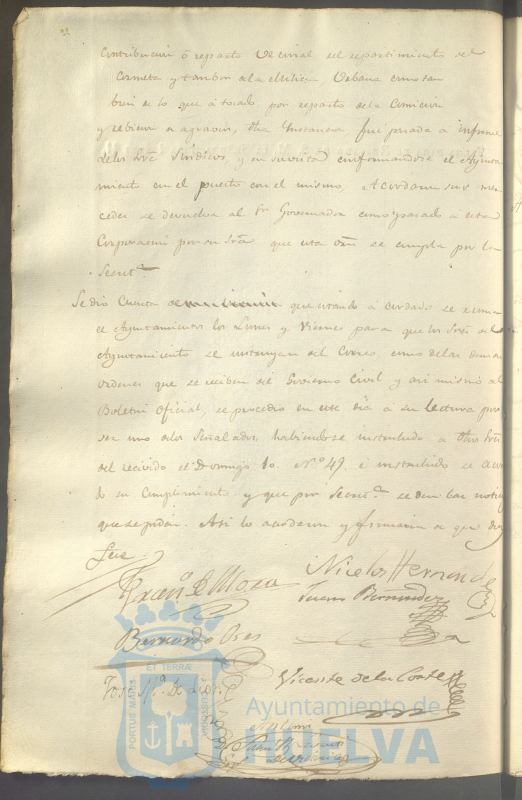 Contribucion ó reparto Vecinal del repartimiento del
Corneta y tambor de la Milicia Urbana como tan
bien de lo que á tocado por reparto de la Comision
y rebision de agravios, dha Instancia fue pasada á informe
de los Sres Sindicos, y en su vista conformandose el Ayunta
miento en el puesto con el mismo, Acordaron sus mer
cedes se devuelva al Sr Governador como pasado á esta
Corporacion por su Sria que esta orn se cumpla por la
Secret.a
Se dió Cuenta que estando á cordado se reuna
el Ayuntamiento los Lunes y Viernes para que los Sres del
Ayuntamiento se instruyan del Correo, como de las demas
ordenes que se reciben del Govierno Civil y asi mismo al
Boletin Oficial, se procedio en este dia á su lectura por
ser uno de los Señalados, habiendose instruido á dhos Sres
del recivido el Domingo 10. N.o 49. é instruido se acor
do su Cumplimiento y que por Secret.a se den las notici
que se pidan. Asi lo acordaron y firmaron de que doy
fee.
Fran.o de Mora
Nicolas Hernande
Juan Bermudez
Bernardo
Jose M.a de
Vicente de la Corte
Antemi
PORTUS MARIS
ET TERRÆ
CUSTODIA
Ayuntamiento de
HUELVA